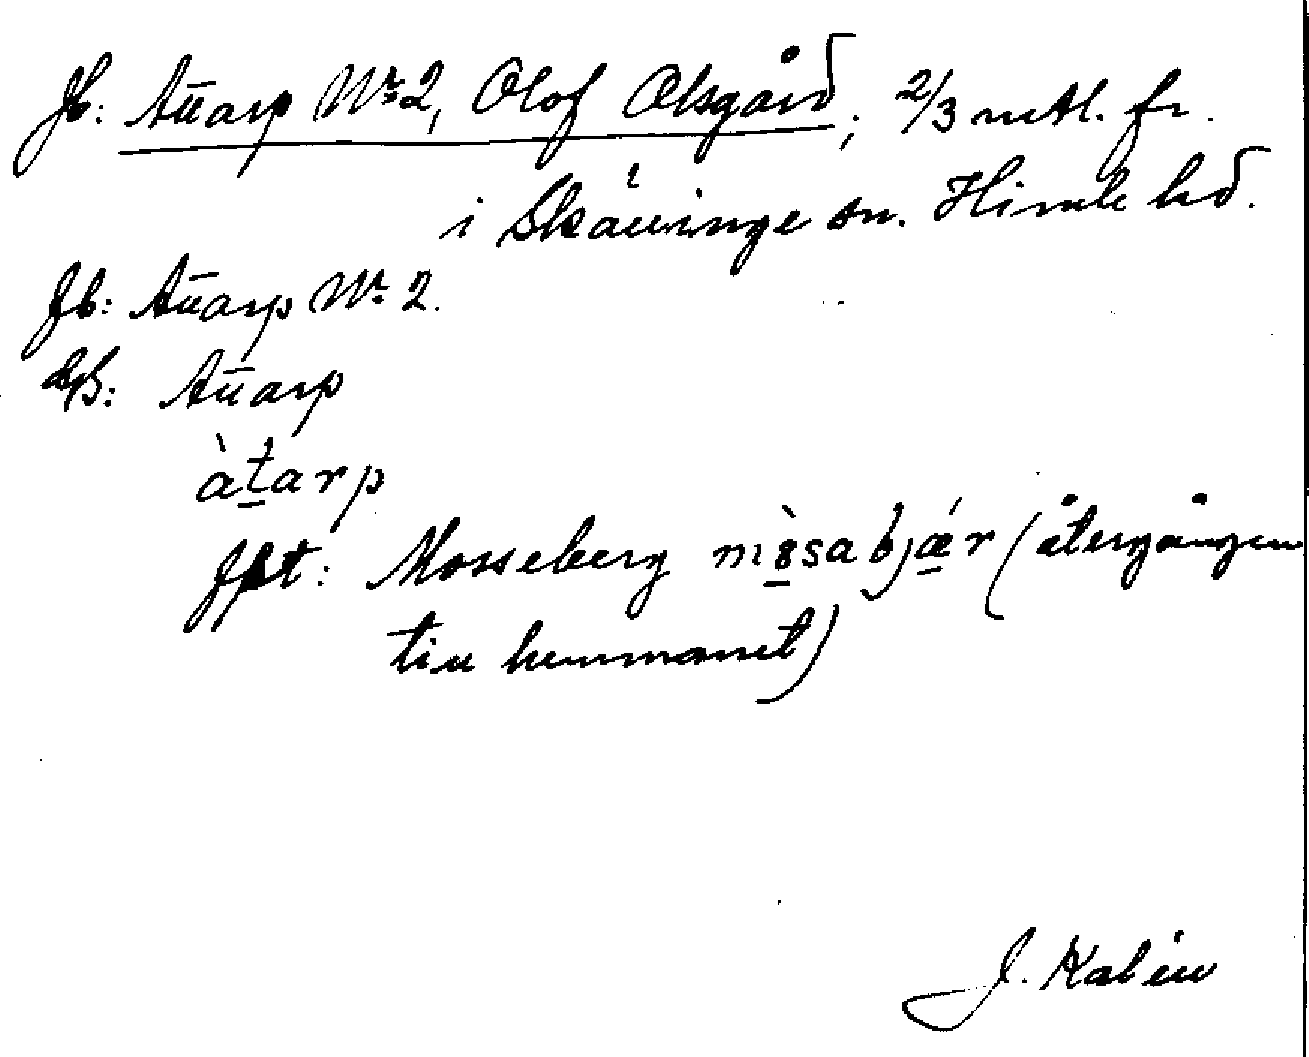 Jb: Attarp Nr 2, Olof Olsgård; 2/3 mtl. fr.
i Skällinge sn. Himle hd.
Jb: Attarp Nr 2.
Attarp
àt̠arp
Mosseberg mò̠sabjǽ̠r (återgången
till hemmanet)
J. Kalén